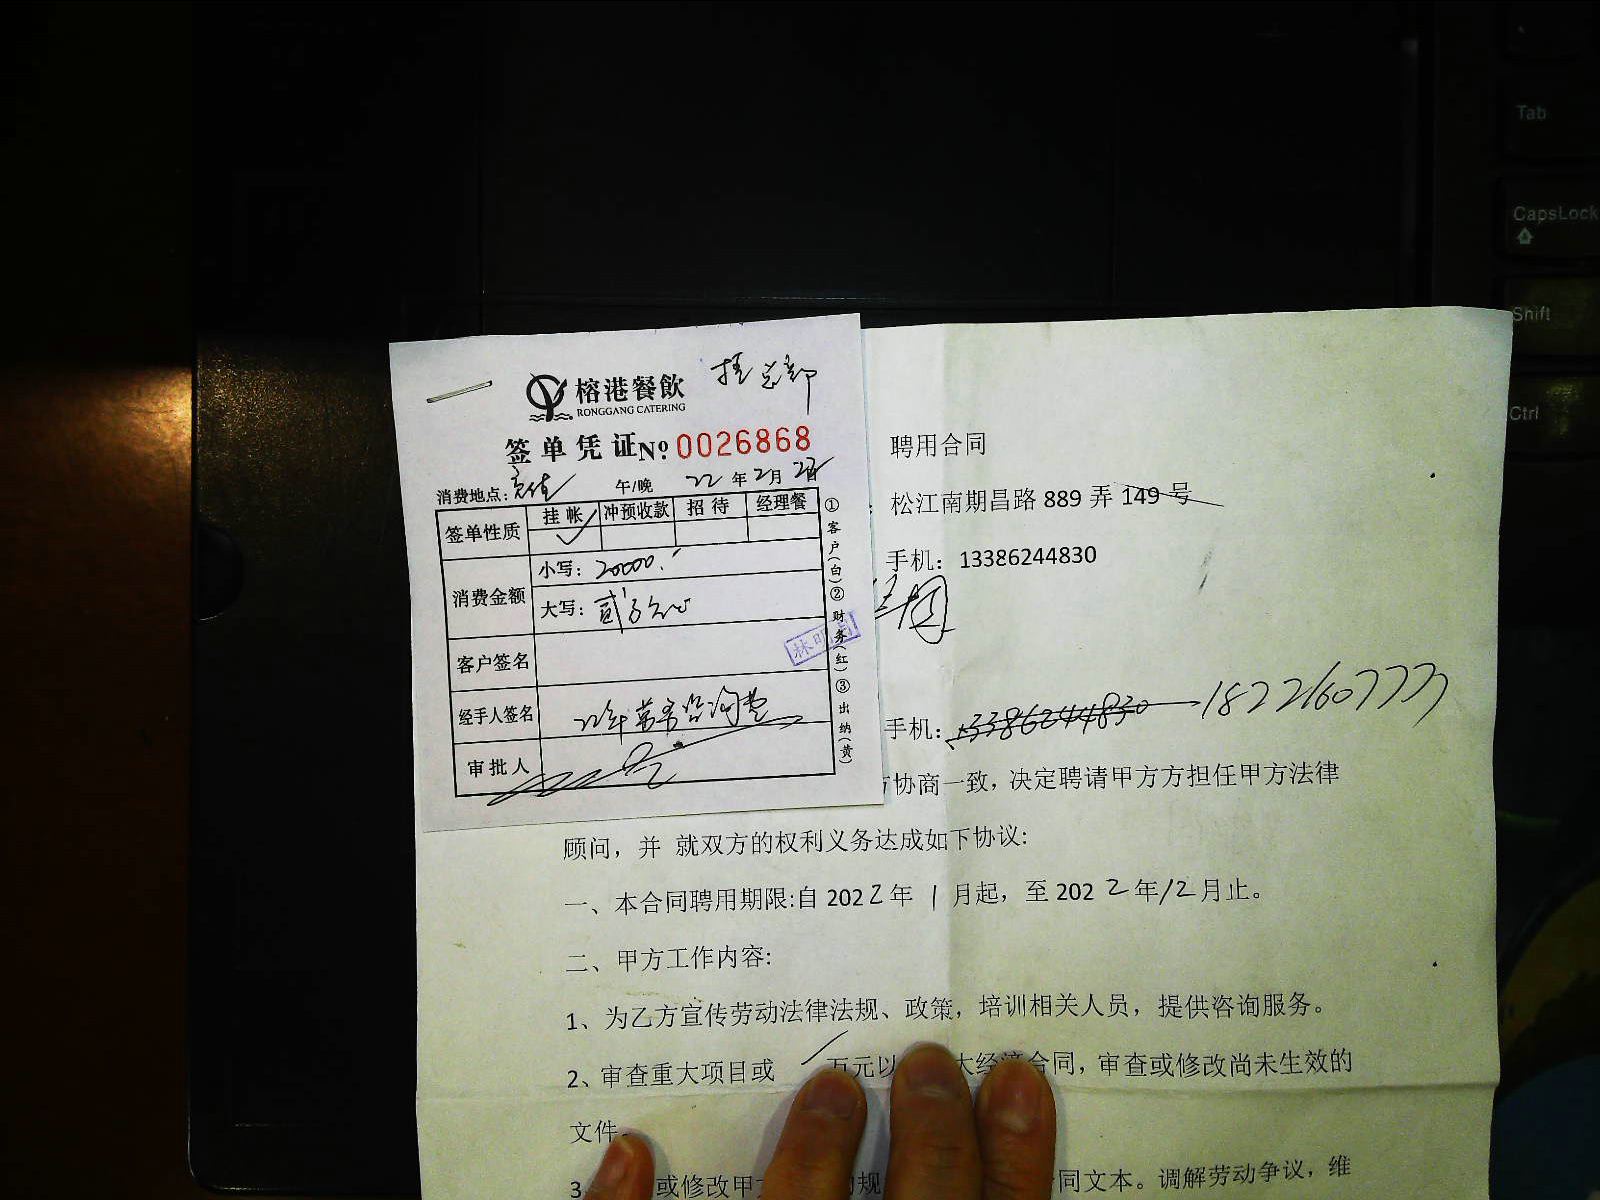 榕港餐飲
RONGGANG CATERING
挂总部
签单凭证 № 0026868
消费地点: 午/晚 22年2月 日
签单性质 挂帐 冲预收款 招待 经理餐
消费金额 小写: 20000.
大写: 贰万元
客户签名
经手人签名 22年 咨询费
审批人
①客户(白)②财务(红)③出纳(黄)
聘用合同
: 松江南期昌路 889 弄 149 号
手机: 13386244830
手机: 13386244830 18221607777
方协商一致,决定聘请甲方方担任甲方法律
顾问,并 就双方的权利义务达成如下协议:
一、本合同聘用期限:自 2022年 1 月起,至 2022年12月止。
二、甲方工作内容:
1、为乙方宣传劳动法律法规、政策,培训相关人员,提供咨询服务。
2、审查重大项目或 / 万元以 大经济合同,审查或修改尚未生效的
文件。
3 或修改甲 的规 同文本。调解劳动争议,维
Tab
CapsLock
Shift
Ctrl